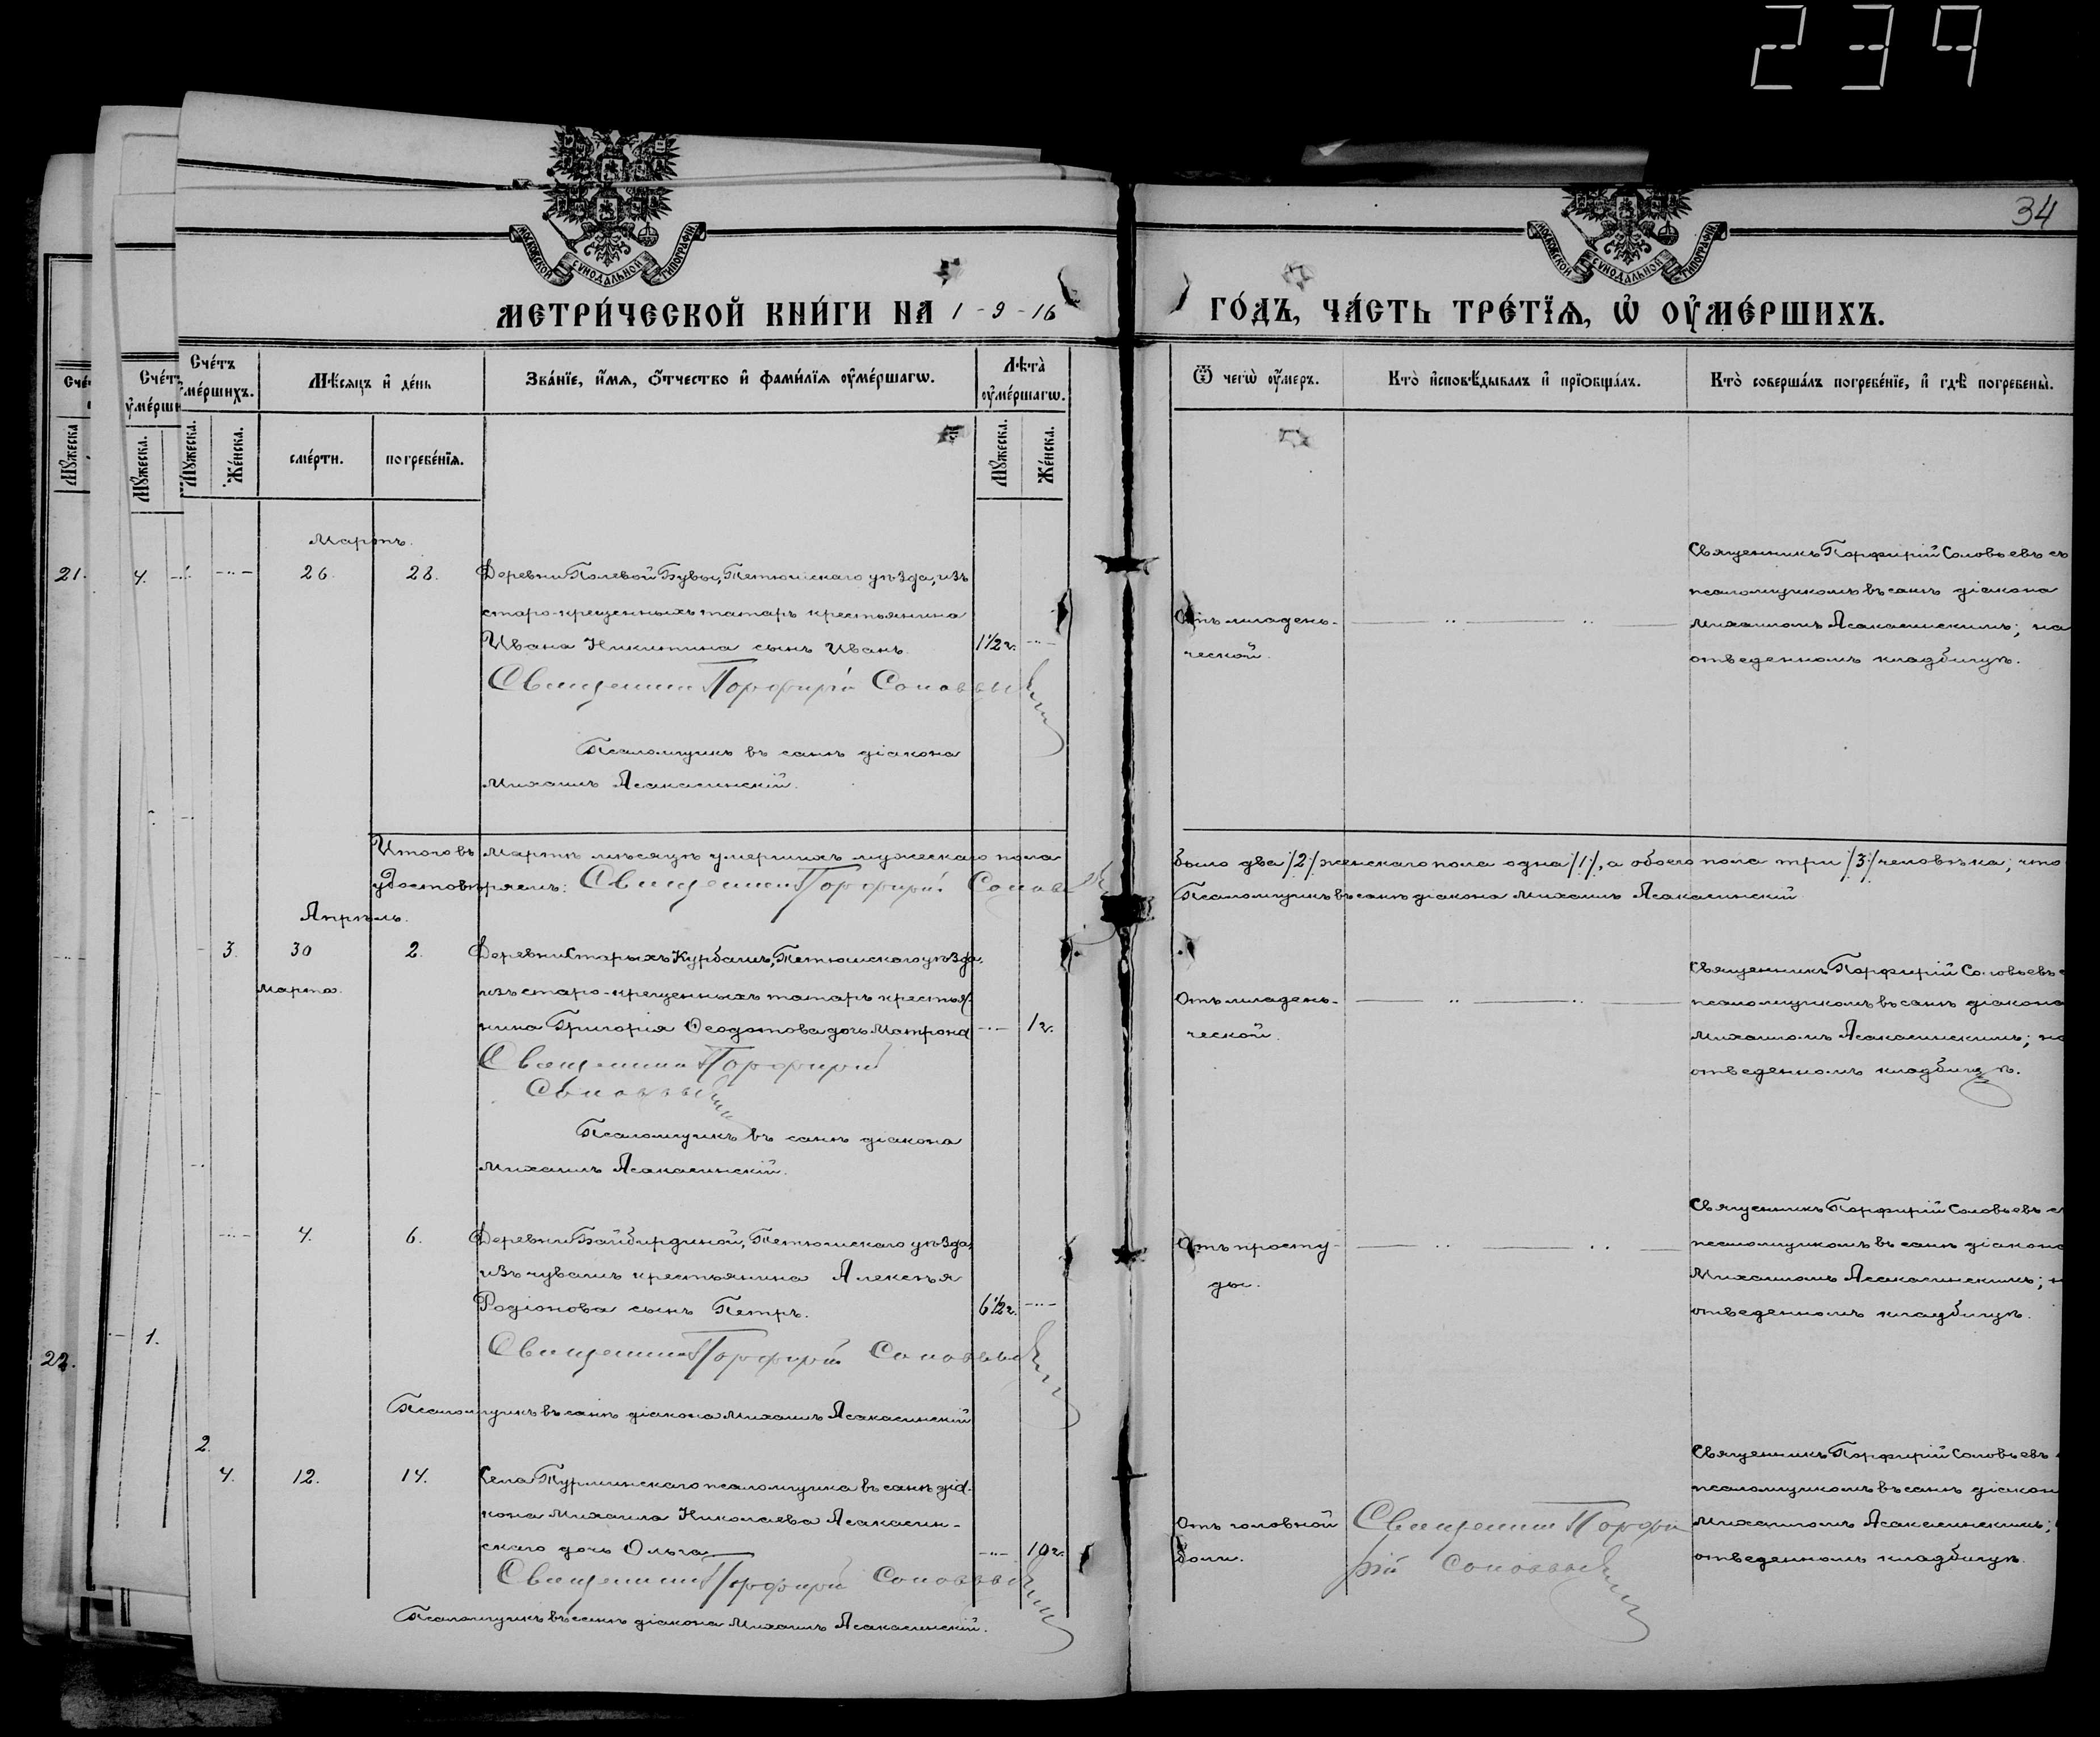 239
34
МОСКОВСКОЙ СѴНОДАЛЬНОЙ ТИПОГРАФІИ
МОСКОВСКОЙ СѴНОДАЛЬНОЙ ТИПОГРАФІИ
МЕТРИ́ЧЕСКОЙ КНИ́ГИ НА 1-9-16 ГО́ДЪ, ЧА́СТЬ ТРЕ́ТЇѦ, Ѡ҆ ОУ҆МЕ́РШИХЪ.
Сче́тъ
оу҆ме́ршихъ.
Мꙋ́жеска.
Же́нска.
Мѣ́сѧцъ и҆ де́нь
сме́рти.
погребе́нїѧ.
Зва́нїе, и҆́мѧ, ѻ҆́тчество и҆ фами́лїѧ оу҆ме́ршагѡ.
Лѣ̀та
оу҆ме́ршагѡ.
Мꙋ́жеска.
Же́нска.
Ѿ чегѡ̀ оу҆́меръ.
Кто̀ и҆сповѣ́дывалъ и҆ прїѻбща́лъ.
Кто̀ соверша́лъ погребе́нїе, и҆ гдѣ̀ погребены̀.
Мартъ.
21. 4. 26. 28. Деревни Полевой Бувы, Тетюшскаго уѣзда, изъ
старо-крещенныхъ татаръ крестьянина
Ивана Никитина сынъ Иванъ. 1 1/2 г.
Священникъ Порфирій Соловьевъ
Псаломщикъ въ санѣ діакона
Михаилъ Асакасинскій.
Отъ младен-
ческой.
Священникъ Порфирій Соловьевъ съ
псаломщикомъ въ санѣ діакона
Михаиломъ Асакасинскимъ; на
отведенномъ кладбищѣ.
Итого въ Мартѣ мѣсяцѣ умершихъ мужескаго пола было два /2/ женскаго пола одна /1/, а обоего пола три /3/ человѣка; что
удостовѣряемъ: Священникъ Порфирій Соловьевъ Псаломщикъ въ санѣ діакона Михаилъ Асакасинскій
Апрѣль.
3. 30 2. Деревни Старыхъ Курбашъ, Тетюшскаго уѣзда,
марта. изъ старо-крещенныхъ татаръ крестья-
нина Григорія Ѳеодотова дочь Матрона 1 г.
Священникъ Порфирій
Соловьевъ
Псаломщикъ въ санѣ діакона
Михаилъ Асакасинскій.
Отъ младен-
ческой.
Священникъ Порфирій Соловьевъ с
псаломщикомъ въ санѣ діакона
Михаиломъ Асакасинскимъ; на
отведенномъ кладбищѣ.
4. 6. Деревни Байбирдиной, Тетюшскаго уѣзда,
изъ чувашъ крестьянина Алексѣя
Родіонова сынъ Петръ. 6 1/2 г.
Священникъ Порфирій Соловьевъ
Псаломщикъ въ санѣ діакона Михаилъ Асакасинскій
Отъ просту-
ды.
Священникъ Порфирій Соловьевъ съ
псаломщикомъ въ санѣ діакона
Михаиломъ Асакасинскимъ; н
отведенномъ кладбищѣ.
22. 1. 2.
4. 12. 14. Села Турминскаго псаломщика въ санѣ діа-
кона Михаила Николаева Асакасин-
скаго дочь Ольга 10 г.
Священникъ Порфирій Соловьевъ
Псаломщикъ въ санѣ діакона Михаилъ Асакасинскій.
Отъ головной
боли.
Священникъ Порфи
рій Соловьевъ
Священникъ Порфирій Соловьевъ
псаломщикомъ въ санѣ діакон
Михаиломъ Асакасинскимъ;
отведенномъ кладбищѣ.